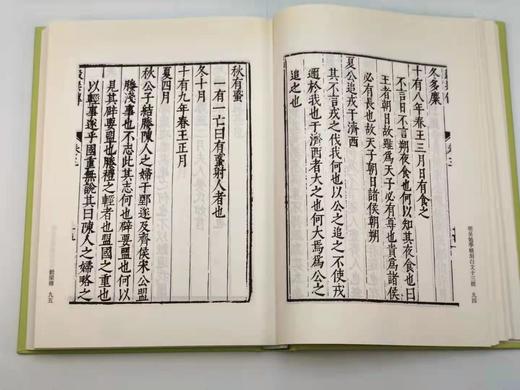 冬多麋
十有八年春王三月日有食之
不言日不言朔夜食也何以知其夜食也曰
王者朝日故雖為天子必有尊也貴為諸侯
必有長也故天子朝日諸侯朝朔
夏公追戎于濟西
其不言戎之伐我何也以公之追之不使戎
邇於我也于濟西者大之也何大焉為公之
追之也
明吳勉學輯刻白文十三經 九四
秋有蜮
一有一亡曰有蜮射人者也
冬十月
十有九年春王正月
夏四月
秋公子結媵陳人之婦于鄄遂及齊侯宋公盟
媵淺事也不志此其志何也辟要盟也何以
見其辟要盟也媵禮之輕者也盟國之重也
以輕事遂乎國重無說其曰陳人之婦略之
穀梁傳 九五